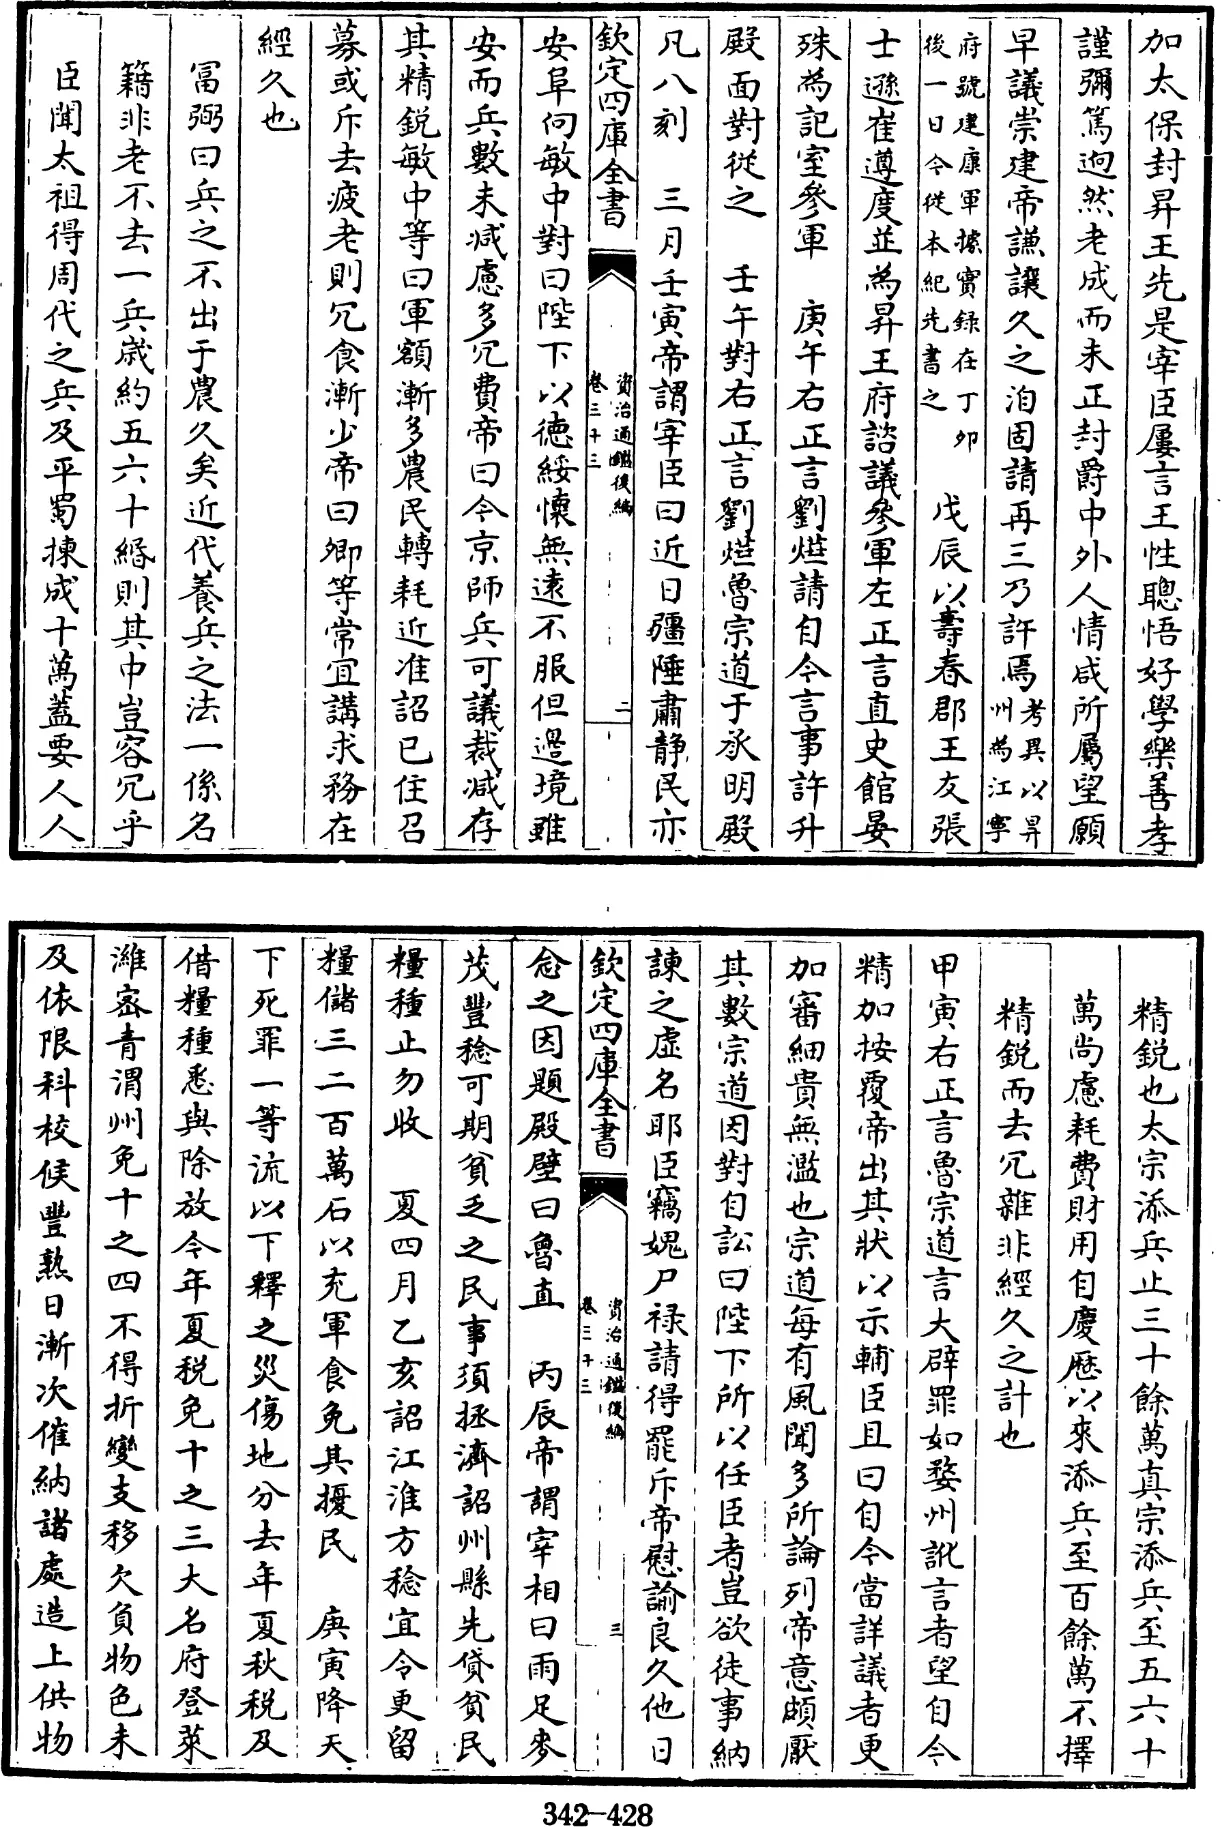 加太保封昇王先是宰臣屢言王性聰悟好學樂善孝
謹彌篤迥然老成而未正封爵中外人情咸所屬望願
早議崇建帝謙讓久之洎固請再三乃許焉考異以昇州為江寧
府號建康軍據實録在丁卯後一日今從本紀先書之　戊辰以壽春郡王友張
士遜崔遵度並為昇王府諮議參軍左正言直史館晏
殊為記室參軍　庚午右正言劉煜請自今言事許升
殿面對從之　壬午對右正言劉煜魯宗道于承明殿
凡八刻　三月壬寅帝謂宰臣曰近日疆陲肅静民亦
欽定四庫全書
資治通鑑後編
卷三十三
二
安阜向敏中對曰陛下以德綏懷無遠不服但邊境雖
安而兵數未減慮多冗費帝曰今京師兵可議裁減存
其精鋭敏中等曰軍額漸多農民轉耗近准詔已住召
募或斥去疲老則冗食漸少帝曰卿等常宜講求務在
經久也
富弼曰兵之不出于農久矣近代養兵之法一係名
籍非老不去一兵歲約五六十緡則其中豈容冗乎
臣聞太祖得周代之兵及平蜀揀成十萬蓋要人人
精鋭也太宗添兵止三十餘萬真宗添兵至五六十
萬尚慮耗費財用自慶歷以來添兵至百餘萬不擇
精鋭而去冗雜非經久之計也
甲寅右正言魯宗道言大辟罪如婺州訛言者望自今
精加按覆帝出其狀以示輔臣且曰自今當詳議者更
加審細貴無濫也宗道每有風聞多所論列帝意頗厭
其數宗道因對自訟曰陛下所以任臣者豈欲徒事納
諫之虛名耶臣竊媿尸禄請得罷斥帝慰諭良久他日
欽定四庫全書
資治通鑑後編
卷三十三
三
念之因題殿壁曰魯直　丙辰帝謂宰相曰雨足麥
茂豐稔可期貧乏之民事須拯濟詔州縣先貸貧民
糧種止勿收　夏四月乙亥詔江淮方稔宜令更留
糧儲三二百萬石以充軍食免其擾民　庚寅降天
下死罪一等流以下釋之災傷地分去年夏秋税及
借糧種悉與除放今年夏税免十之三大名府登萊
濰密青渭州免十之四不得折變支移欠負物色未
及依限科校候豐熟日漸次催納諸處造上供物
342-428